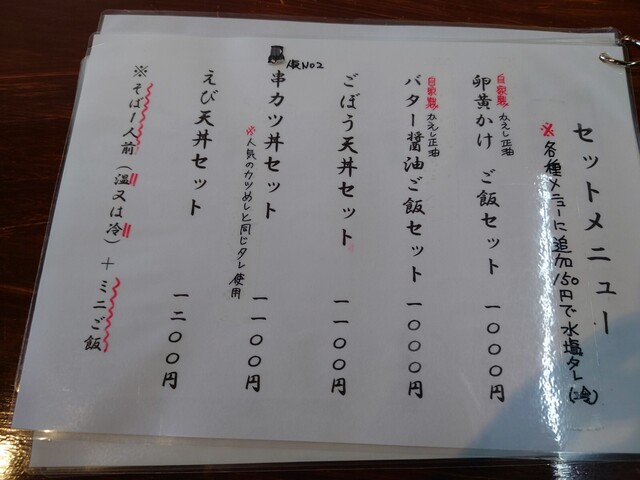 セットメニュー
※各種メニューに追加150円で水塩タレ(冷)
自家製かえし正油
卵黄かけ ご飯セット 一〇〇〇円
自家製かえし正油
バター醤油ご飯セット 一〇〇〇円
ごぼう天丼セット 一一〇〇円
人気NO2
串カツ丼セット 一一〇〇円
※人気のカツめしと同じタレ使用
えび天丼セット 一二〇〇円
※そば1人前(温又は冷)+ミニご飯